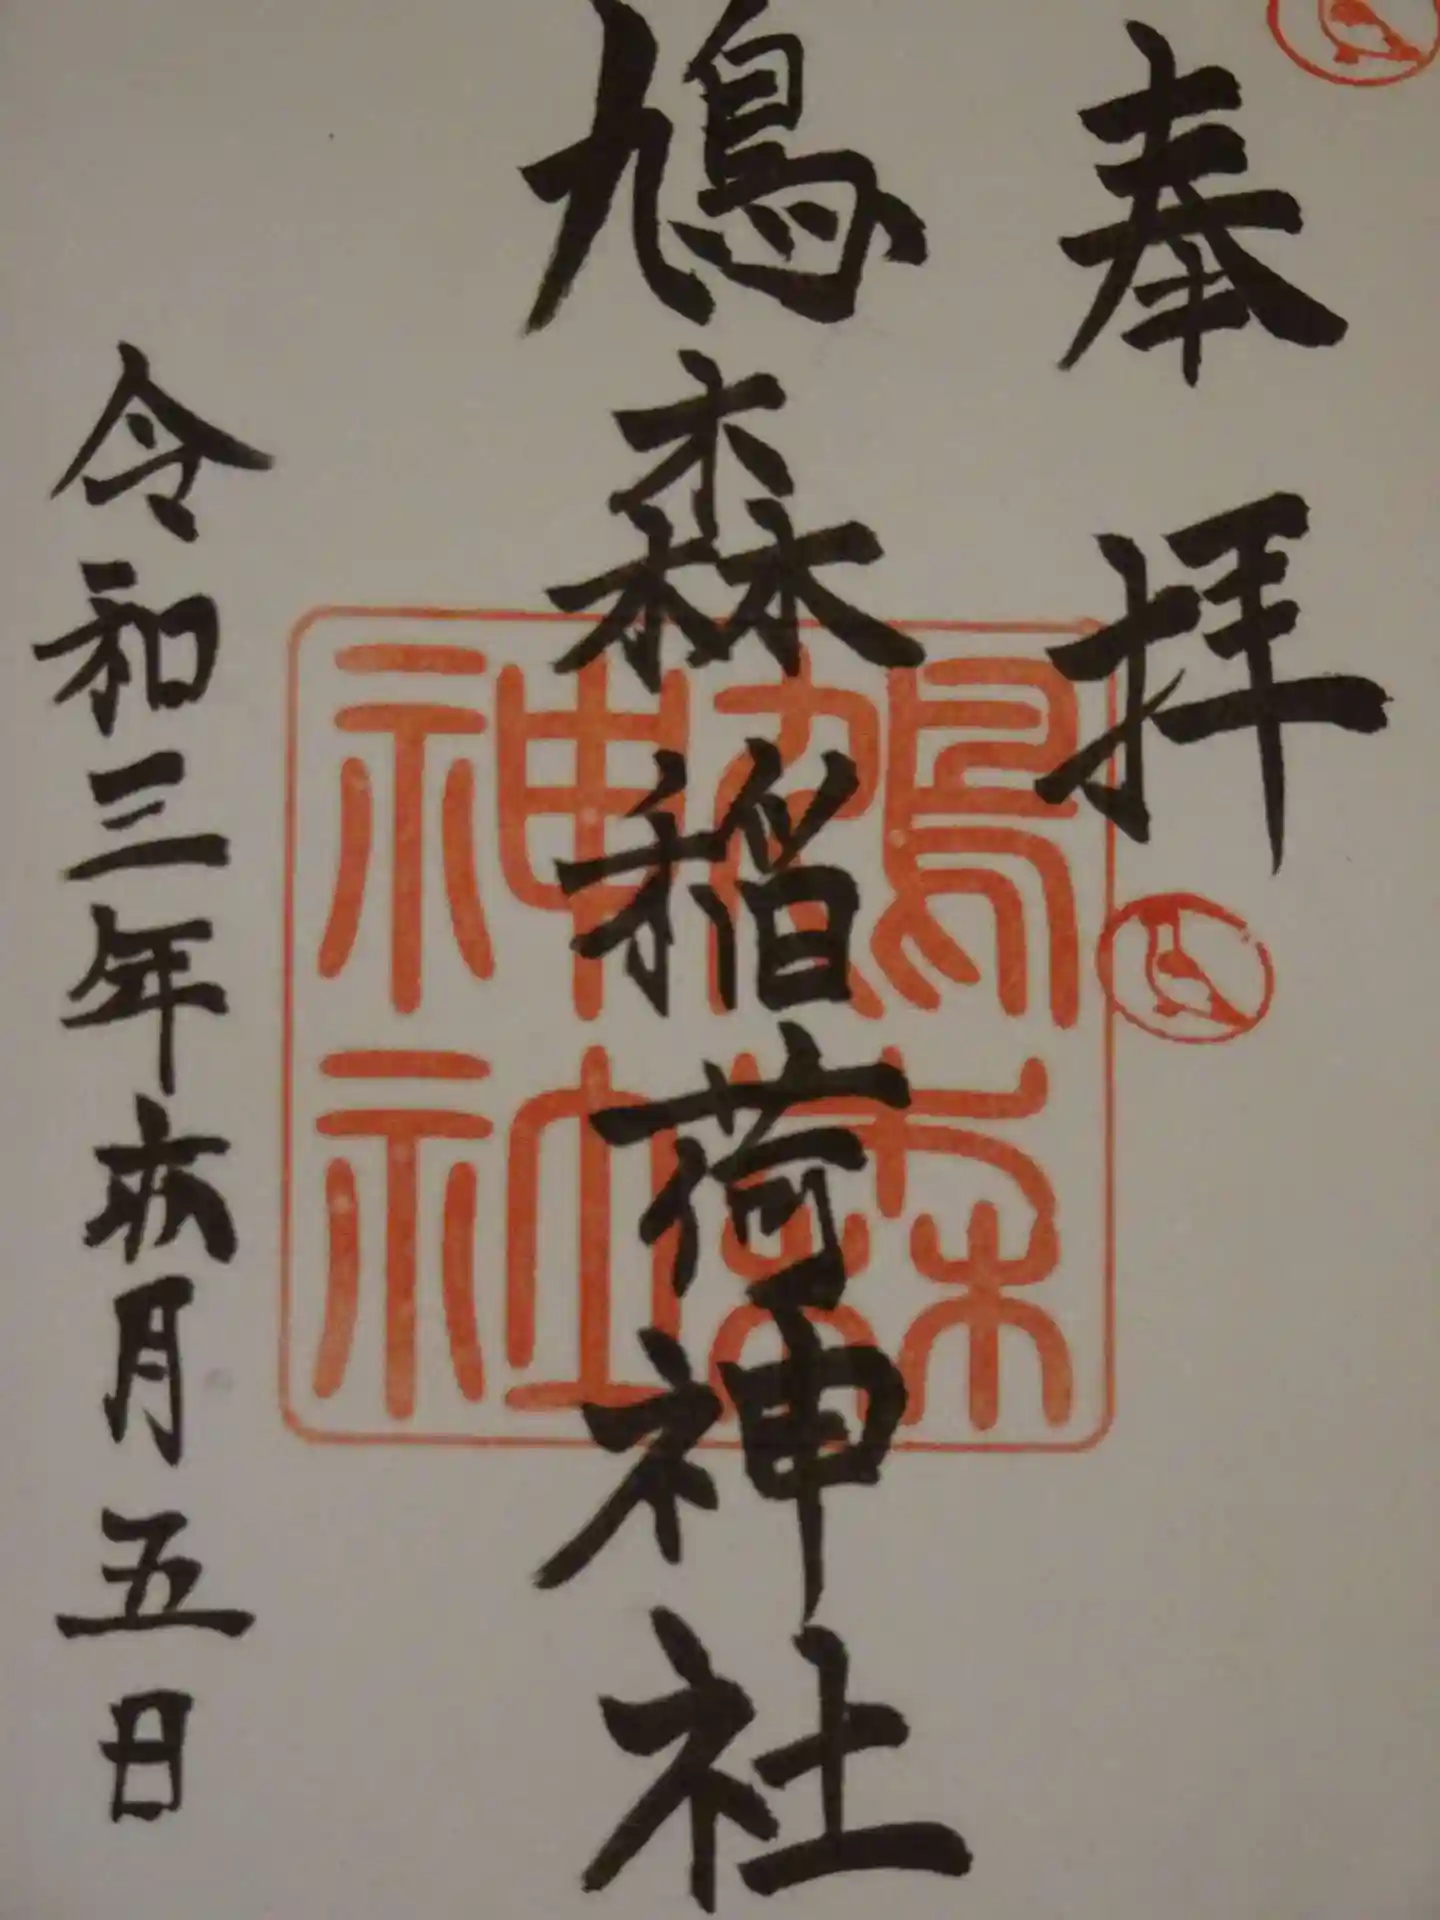 奉拝
鳩森稲荷神社
鳩森神社
令和三年六月五日